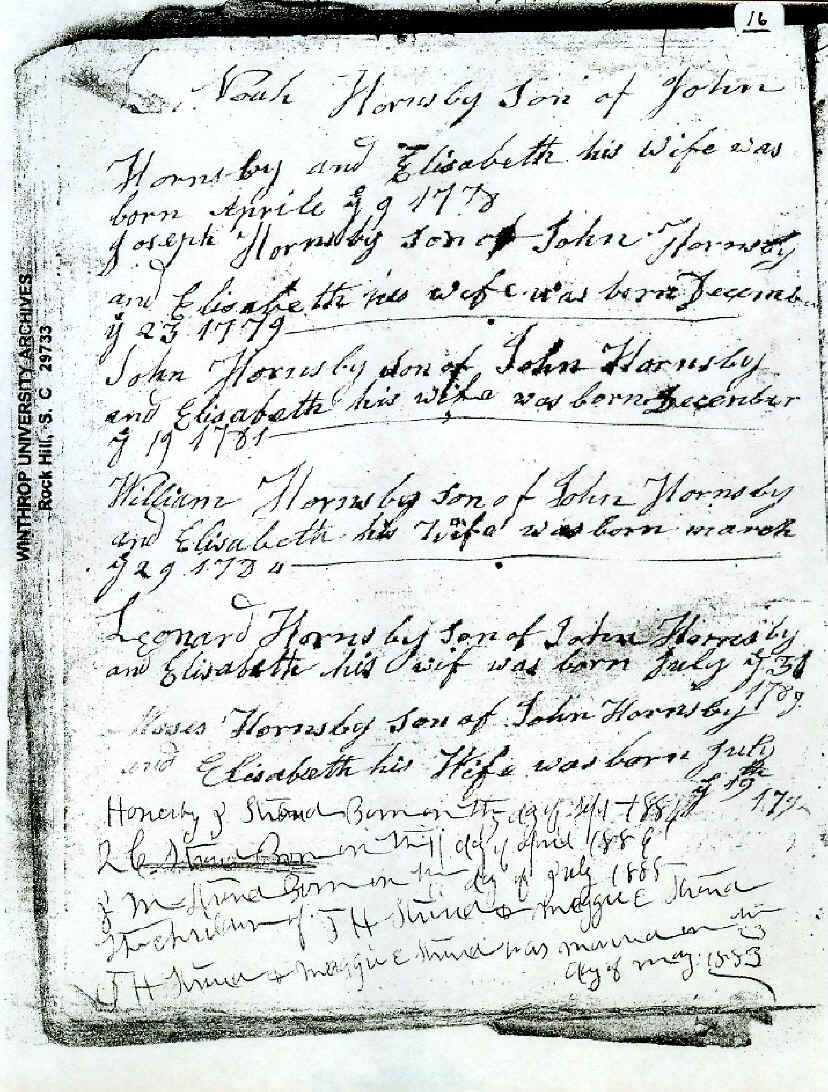 16
Noah Hornsby Son of John
Hornsby and Elisabeth his wife was
born Aprile ye 9 1778
Joseph Hornsby Son of John Hornsby
and Elisabeth his wife was born Decemb
ye 23 1779
John Hornsby Son of John Hornsby
and Elisabeth his wife was born December
ye 19 1781
William Hornsby Son of John Hornsby
and Elisabeth his Wife was born march
ye 29 1784
Leonard Hornsby Son of John Hornsby
and Elisabeth his wif was born July ye 31
1789
Moses Hornsby Son of John Hornsby
and Elisabeth his Wife was born July
ye 19th
Born on the day of
Born on the 11 day of april 188
J M Born on day of July 1885
of J H & Maggie E
J H & Maggie E was married on
day of may 1883
WINTHROP UNIVERSITY ARCHIVES
Rock Hill, S. C 29733